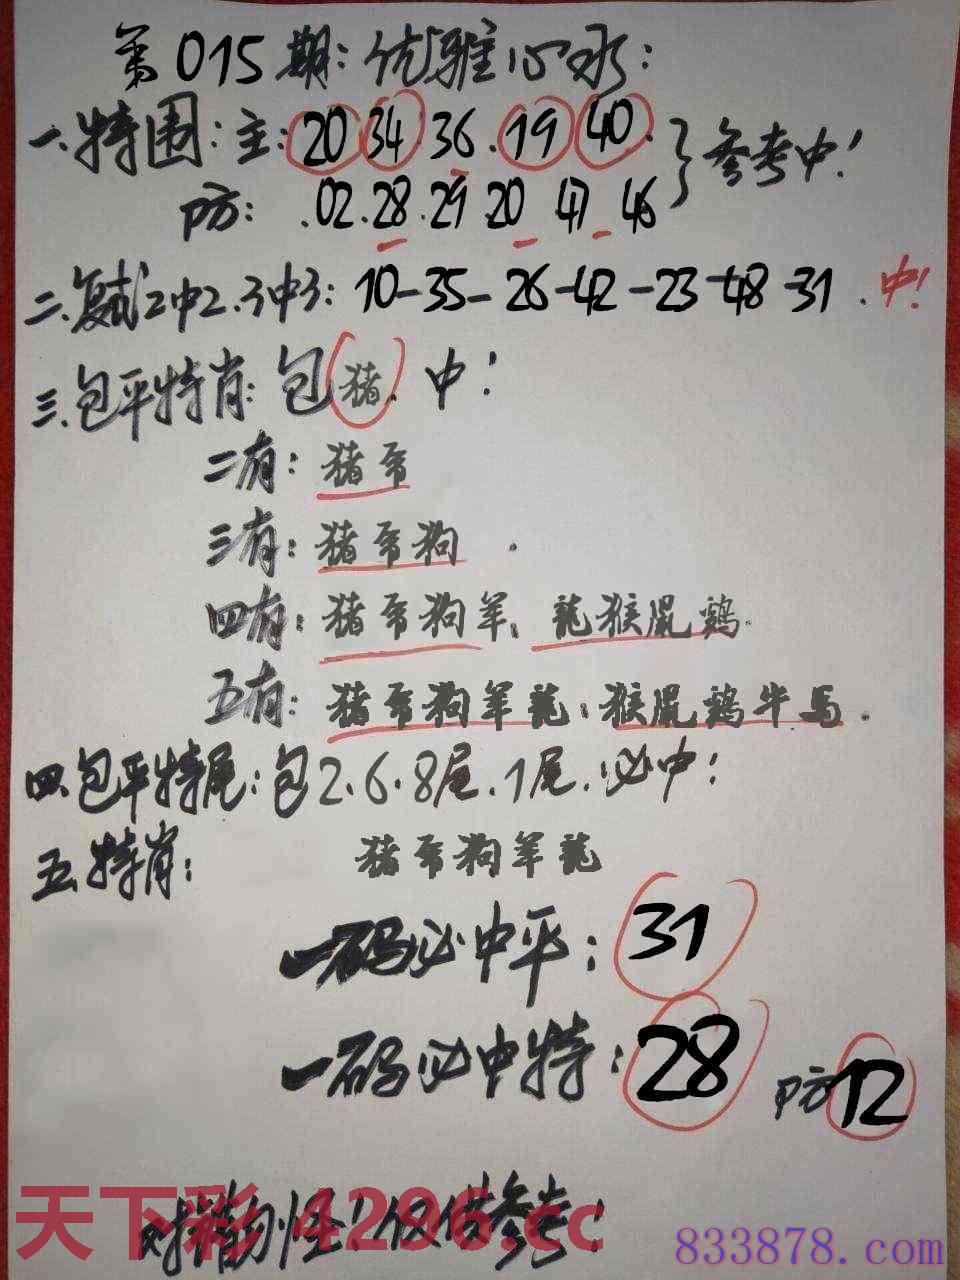 第015期：优雅心水：
一.特围：主：20 34.36.19 40.
防：.02.28.29 20 47 46
参考中！
二.复试2中2.3中3：10-35-26-42-23-48-31.中！
三.包平特肖：包猪.中！
二有：猪
三有：猪 狗.
四有：猪 狗羊、龍猴鼠鷄.
五有：猪 狗羊龍：猴鼠鷄牛馬.
四.包平特尾：包2.6.8尾.1尾.必中！
五.特肖：猪 狗羊龍
一码必中平：31
一码必中特：28 防12
天下彩 4296.cc
仅供参考！
833878.com